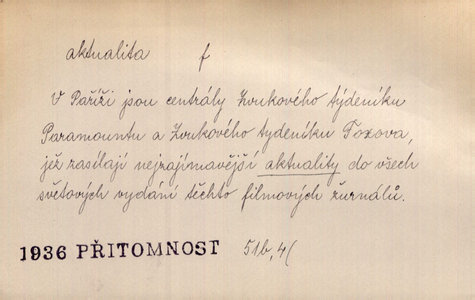 aktualita f
V Paříži jsou centrály zvukového týdeníku
Paramountu a zvukového týdeníku Foxova,
jež zasílají nejzajímavější aktuality do všech
světových vydání těchto filmových žurnálů.
1936 PŘITOMNOST 51b, 4(